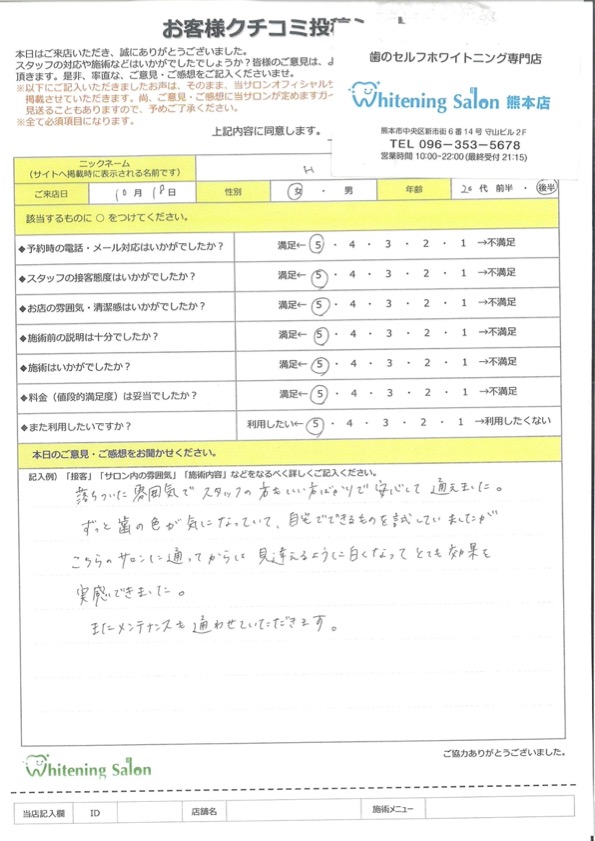 お客様クチコミ投稿
本日はご来店いただき、誠にありがとうございました。
スタッフの対応や施術などはいかがでしたでしょうか？皆様のご意見は、よ
頂きます。是非、率直な、ご意見・ご感想をご記入くださいませ。
※以下にご記入いただきましたお声は、そのまま、当サロンオフィシャルサ
掲載させていただきます。尚、ご意見・ご感想に当サロンが定めますガイ
見送ることもありますので、予めご了承ください。
※全て必須項目になります。
上記内容に同意します。
歯のセルフホワイトニング専門店
Whitening Salon 熊本店
熊本市中央区新市街6番14号 守山ビル2F
TEL 096-353-5678
営業時間 10:00~22:00 (最終受付 21:15)
ニックネーム
（サイトへ掲載時に表示される名前です）
H
ご来店日 10月18日 性別 女・男 年齢 20代 前半・後半
該当するものに ○ をつけてください。
◆予約時の電話・メール対応はいかがでしたか？ 満足← 5 ・ 4 ・ 3 ・ 2 ・ 1 →不満足
◆スタッフの接客態度はいかがでしたか？ 満足← 5 ・ 4 ・ 3 ・ 2 ・ 1 →不満足
◆お店の雰囲気・清潔感はいかがでしたか？ 満足← 5 ・ 4 ・ 3 ・ 2 ・ 1 →不満足
◆施術前の説明は十分でしたか？ 満足← 5 ・ 4 ・ 3 ・ 2 ・ 1 →不満足
◆施術はいかがでしたか？ 満足← 5 ・ 4 ・ 3 ・ 2 ・ 1 →不満足
◆料金（値段的満足度）は妥当でしたか？ 満足← 5 ・ 4 ・ 3 ・ 2 ・ 1 →不満足
◆また利用したいですか？ 利用したい← 5 ・ 4 ・ 3 ・ 2 ・ 1 →利用したくない
本日のご意見・ご感想をお聞かせください。
記入例）「接客」「サロン内の雰囲気」「施術内容」などをなるべく詳しくご記入ください。
落ちついた雰囲気でスタッフの方もいい方ばかりで安心して通えました。
ずっと歯の色が気になっていて、自宅でできるものを試していましたが
こちらのサロンに通ってからは見違えるように白くなってとても効果を
実感できました。
またメンテナンスも通わせていただきます。
ご協力ありがとうございました。
Whitening Salon
当店記入欄 ID 店舗名 施術メニュー